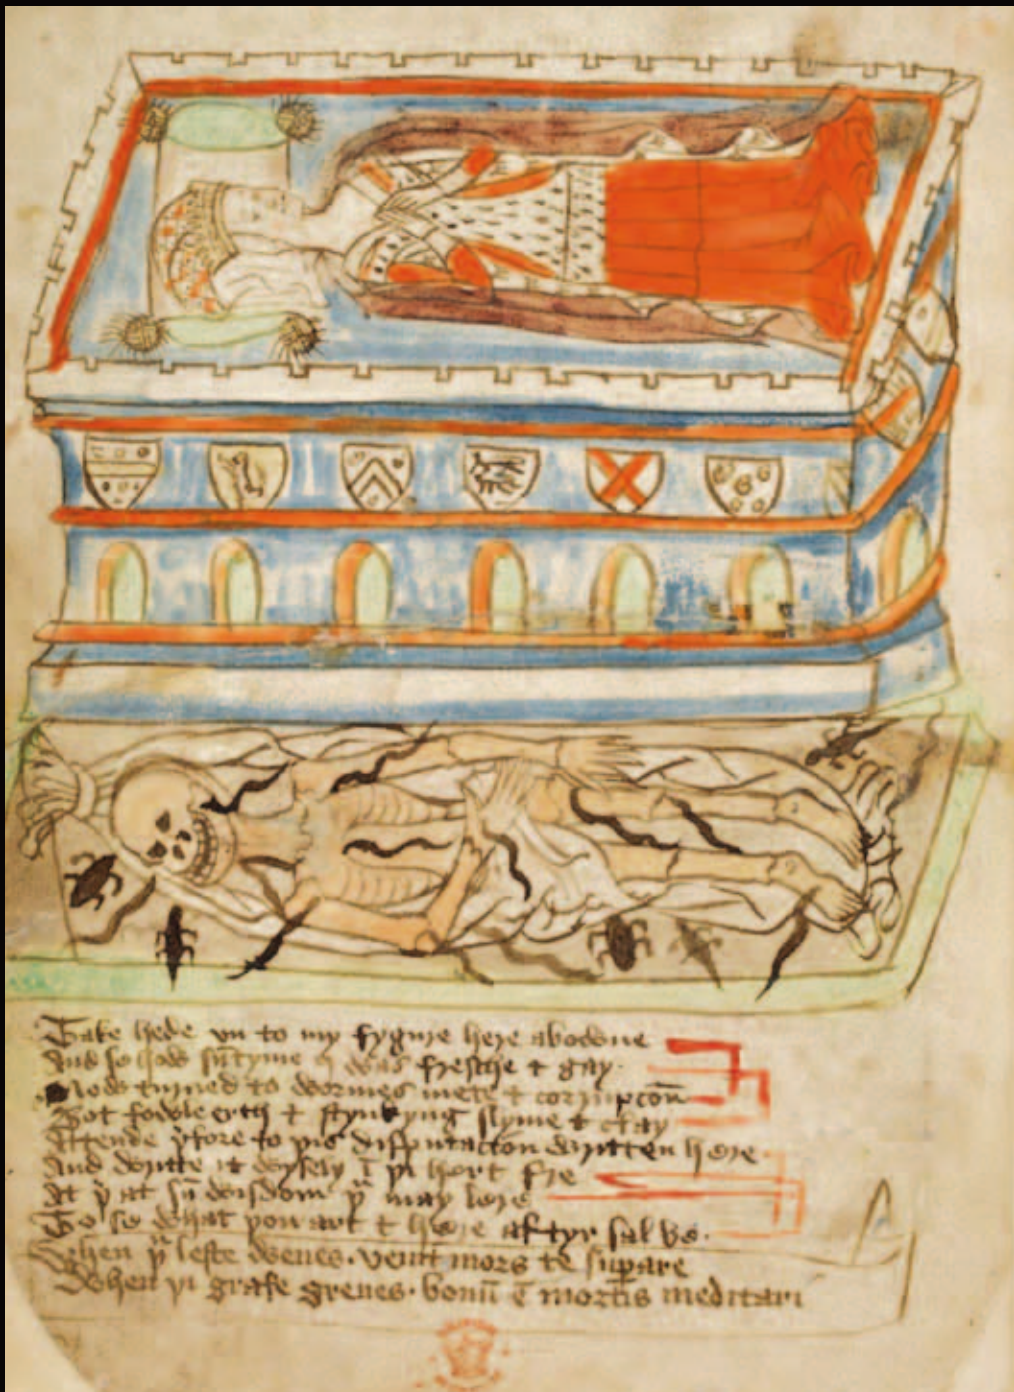 Take hede vn to my fygure here abowne
And se how sūtyme I was fresche & gay
Now turned to wormes mete & corrupcoū
Bot fowle erth & stynkyng slyme & clay
Attende þfore to þis disputacion written here
And writte it wysely ī þi hert fre
At þ at sū wisdom þū may lere
To se what þou art & here aftyr sal be.
When þū leste wenes. venit mors te supare
When þi grafe greues. bonū ē mortis meditari